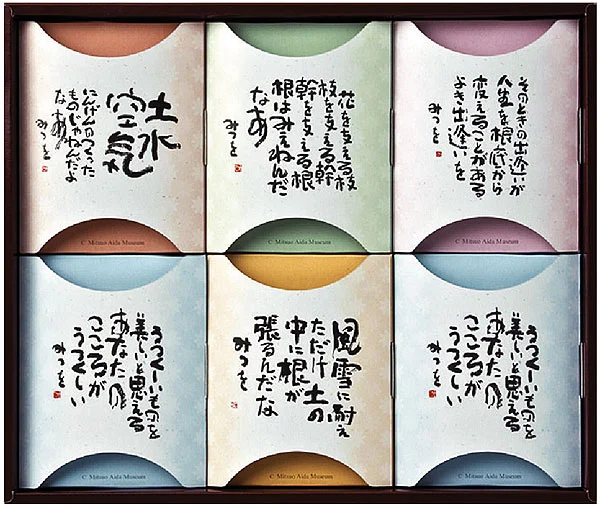 土水
空気
にんげんのつくった
ものじゃねんだよ
なあ
みつを
© Mitsuo Aida Museum
花を支える枝
枝を支える幹
幹を支える根
根はみえねんだ
なあ
みつを
© Mitsuo Aida Museum
そのときの出逢いが
人生を根底から
変えることがある
よき出逢いを
みつを
© Mitsuo Aida Museum
うつくしいものを
美しいと思える
あなたの
こころが
うつくしい
みつを
© Mitsuo Aida Museum
風雪に耐え
ただけ土の
中に根が
張るんだな
みつを
© Mitsuo Aida Museum
うつくしいものを
美しいと思える
あなたの
こころが
うつくしい
みつを
© Mitsuo Aida Museum